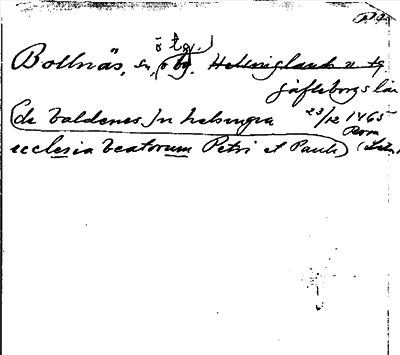 Bollnäs, sn, Helsinglands v tg
Gäfleborgs län
(de baldenes In helsingia 23/12 1465
Rom
ecclesia beatorum Petri et Pauli)